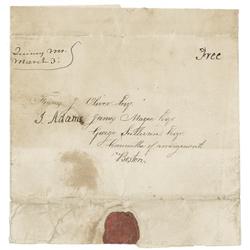 Quincy Ms.
March 3.
Free
Francis J. Oliver Esqr
J. Adams James Magee Esqr
George Sullivan Esqr
Committee of arrangements
Boston.